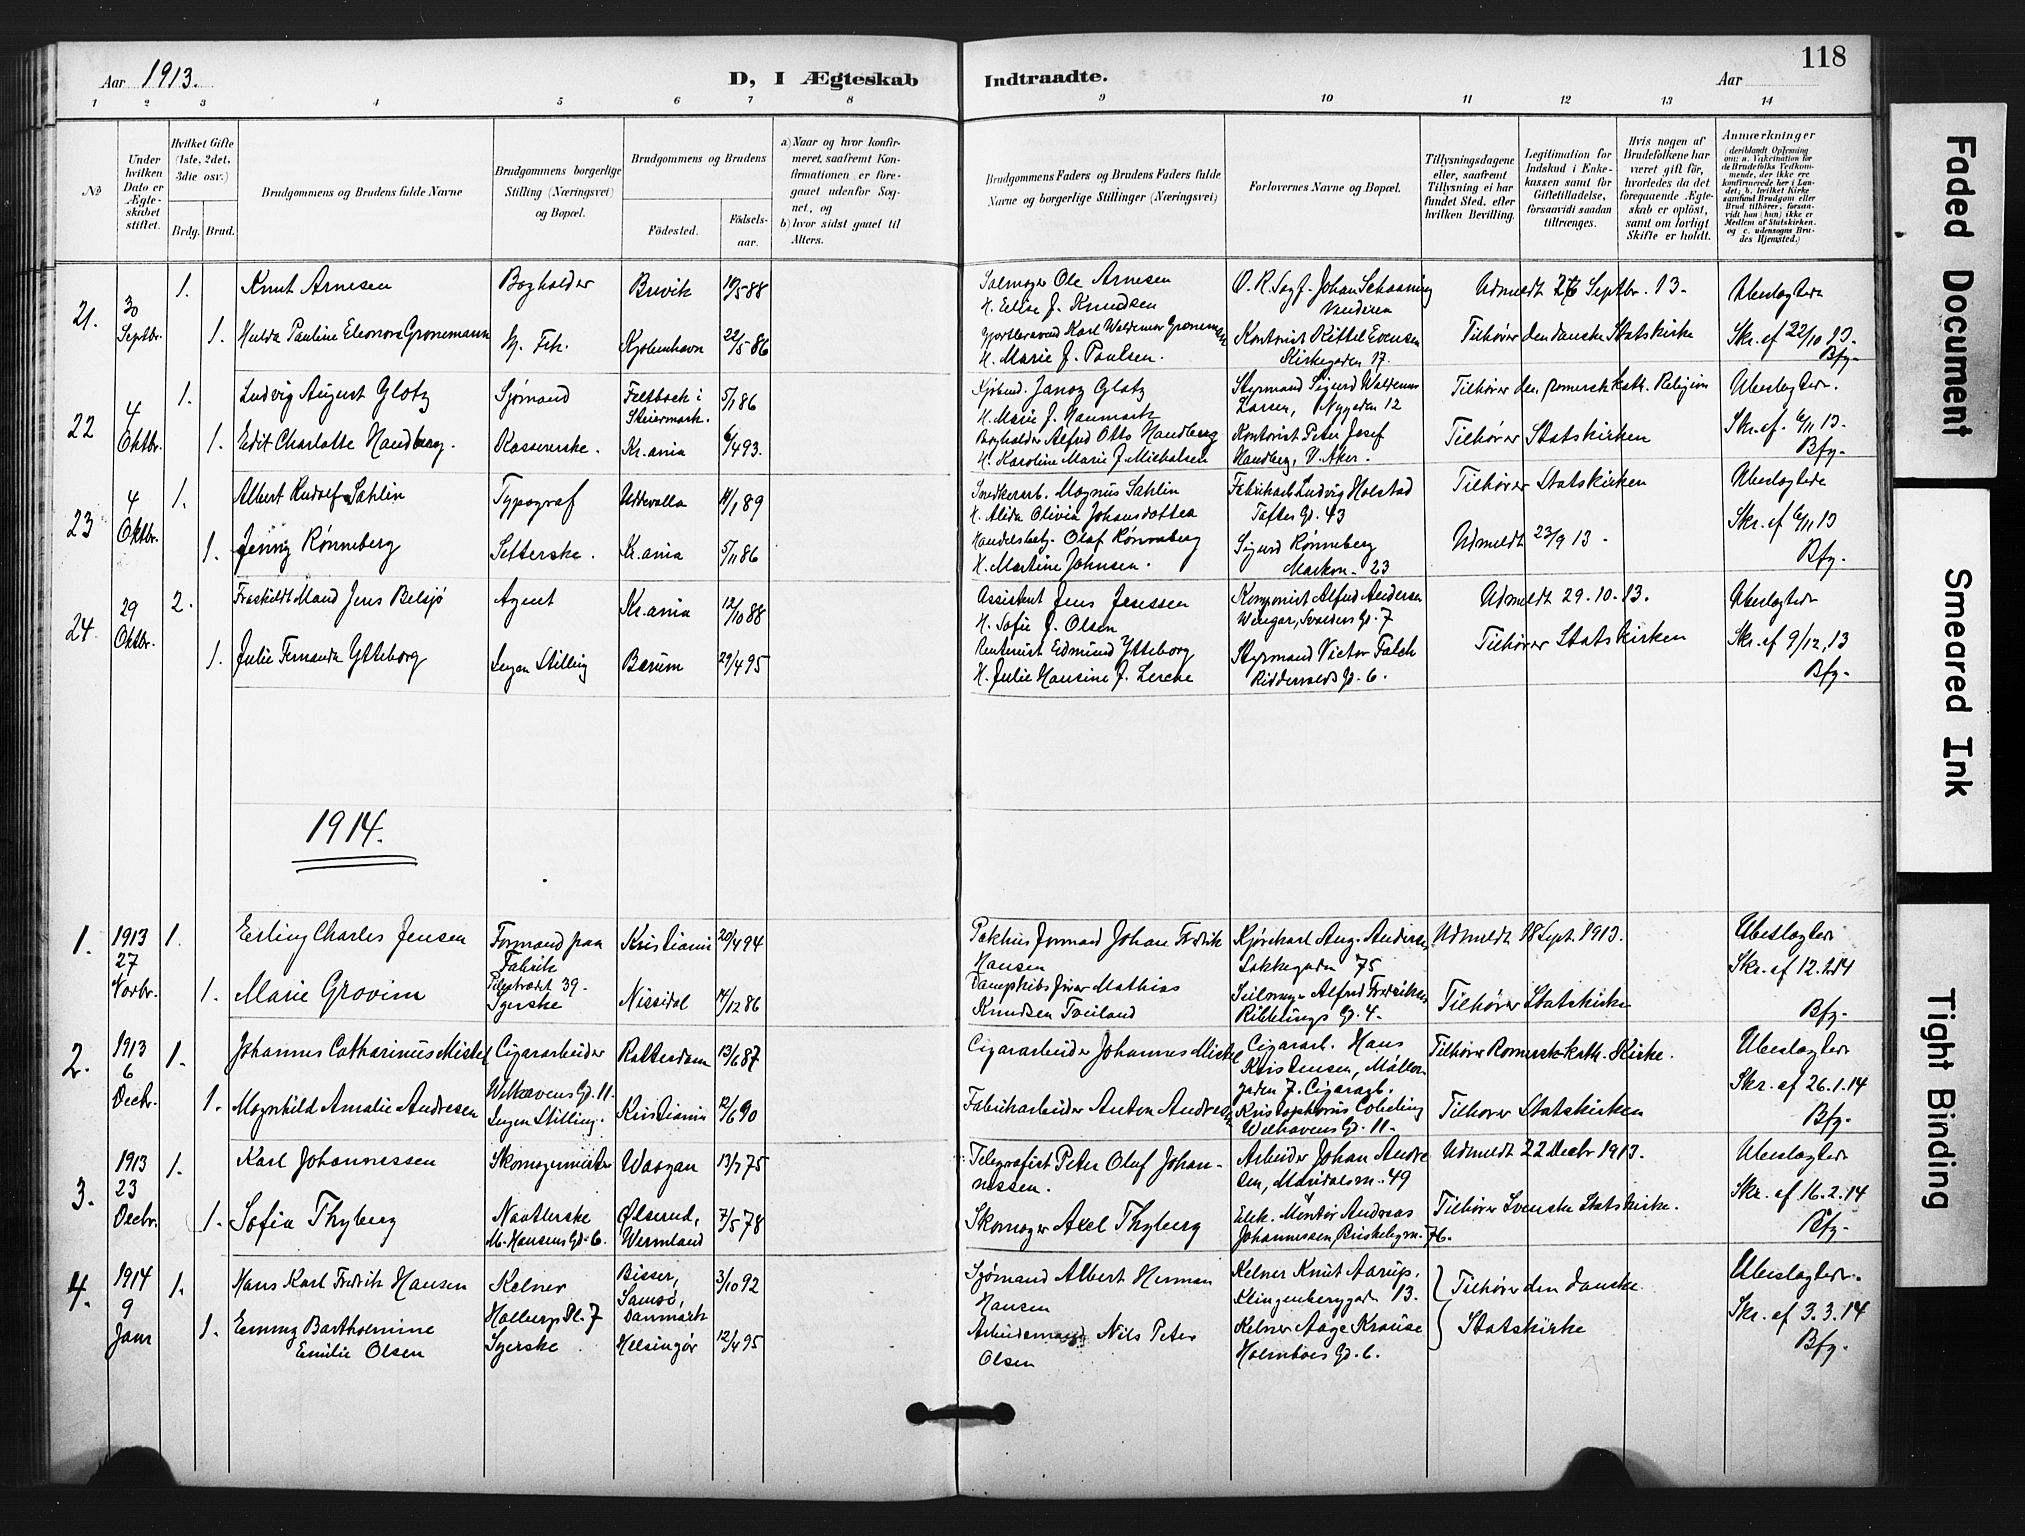 118
Aar 1913.
D, I Ægteskab Indtraadte.
Aar
1 2 3 4 5 6 7 8 9 10 11 12 13 14
No
Under hvilken Dato er Ægteskabet stiftet.
Hvilket Gifte (1ste, 2det, 3die osv.)
Brdg. Brud.
Brudgommens og Brudens fulde Navne
Brudgommens borgerlige Stilling (Næringsvei) og Bopæl.
Brudgommens og Brudens
Fødested. Fødselsaar.
a) Naar og hvor konfirmeret, saafremt Konfirmationen er foregaaet udenfor Sognet, og
b) hvor sidst gaaet til Alters.
Brudgommens Faders og Brudens Faders fulde Navne og borgerlige Stillinger (Næringsvei)
Forlovernes Navne og Bopæl.
Tillysningsdagene eller, saafremt Tillysning ei har fundet Sted, efter hvilken Bevilling.
Legitimation for Indskud i Enkekassen samt for Giftetilladelse, forsaavidt saadan tiltrænges.
Hvis nogen af Brudefolkene har været gift før, hvorledes da det foregaaende Ægteskab er opløst, samt om lovligt Skifte er holdt.
Anmærkninger (deriblandt Oplysning om: a. Vakcination for de Brudefolks Vedkommende, der ikke ere konfirmerede her i Landet; b. hvilket Kirkesamfund Brudgom eller Brud tilhører, forsaavidt han (hun) ikke er Medlem af Statskirken, og c. udensogns Brudes Hjemsted.)
21. 30 Septbr. 1. Knut Arnesen Bogholder Brevik 10/5 88
Ole Arnesen
H. Elise f. Knudsen
Johan Schaaning
Vinderen
Udmeldt 26 Septbr. 13.
Ubeslægtede
1. Hulda Pauline Eleonora Gronemann Frk. Kjøbenhavn 22/5 86
Karl Waldemar Gronemann
H. Marie f. Paulsen.
Kontorist Kittel Evensen
Kirkegaden 17.
Tilhører den danske Statskirke
Skr. ef 22/10 13.
Bfg.
22 4 Oktbr. 1. Ludvig August Glotz Sjømand Feltbach i
Steiermark. 5/1 86
Janoz Glotz
H. Marie f. Naumark
Styrmand Sigurd Waldemar
Larsen, Nygaden 12
Tilhører den romersk kath. Religion
Ubeslægtede.
1. Edit Charlotte Handberg. Kassererske. Kr.ania 6/4 93.
Bogholder Alfred Otto Handberg
H. Karoline Marie f. Michalsen
Kontorist Peter Josef
Handberg, V. Aker.
Tilhører Statskirken
Skr. ef. 6/11 13
Bfg.
23 4 Oktbr. 1. Albert Rudolf Sahlin Typograf Uddevalla 11/1 89
Snedkerarb. Magnus Sahlin
H. Alida Olivia Johansdotter
Ludvig Holstad
Toftes Gd. 43
Tilhører Statskirken
Ubeslægtede
1. Jenny Rønneberg Setterske. Kr.ania 5/11 86
Olaf Rønneberg
H. Martine Johnsen.
Sigurd Rønneberg
Markvn. 23
Udmeldt 23/9 13.
Skr. ef 6/11 13
Bfg.
24. 29 Oktbr. 2. Fraskildt Mand Jens Belsjø Agent Kr.ania 12/10 88
Assistent Jens Jenssen
H. Sofie f. Olsen
Komponist Alfred Andersen
Wengar, Svoldens Gd. 7
Udmeldt 29.10.13.
Ubeslægtede
1. Julie Fernanda Ytteborg Ingen Stilling Bærum 29/4 95
Rentenist Edmund Ytteborg
H. Julie Hansine f. Lerche
Styrmand Victor Falch
Riddervolds Gd. 6.
Tilhører Statskirken
Skr. ef 9/12, 13
Bfg.
1914.
1. 1913 27 Novbr. 1. Erling Charles Jensen Formand paa
Fabrik
Pilestrædet 39. Kristiania 20/4 94
Pakhusformand Johan Fredrik
Hansen
Kjørekarl Aug. Andersen
Løkkegaden 75
Udmeldt 18 Sept. 1913.
Ubeslægtede
1. Marie Grovim Syerske Nissedal 14/12 86
Mathias
Knudsen Treiland
Alfred Fredriksen
Gd. 4.
Tilhører Statskirke
Skr. ef 12.1.14
Bfg.
2. 1913 6 Decbr. 1. Johannes Catharinus Mickel Cigararbeider
Welhavens Gd. 11. Rotterdam 13/6 87
Cigararbeider Johannes Mickel
Cigararb. Hans
Kristensen, Møller-
gaden 7. Cigararb.
Tilhører Romersk kath. Kirke.
Ubeslægtede
1. Magnhild Amalie Andresen Ingen Stilling. Kristiania 12/6 90
Fabrikarbeider Anton Andresen
Welhavens Gd. 11.
Tilhører Statskirken
Skr. ef 26.1.14
Bfg.
3. 1913 23 Decbr. 1. Karl Johannessen Skomagermester Vaagan 13/7 75
Telegrafist Peter Oluf Johan-
nessen.
Arbeider Johan Andre
sen, Maridalsv. 49
Udmeldt 22 Decbr 1913.
Ubeslægtede
1. Sofia Thyberg Naatlerske
M. Hansens Gd. 6. Ølserud,
Wermland 7/5 78
Skomager Axel Thyberg
Elek. Montør Andreas
Johannessen, Briskebyvn. 76.
Tilhører Svenske Statskirke.
Skr. ef 16.2.14
Bfg.
4. 1914 9 Janr 1. Hans Karl Fredrik Hansen Kelner
Holbergs Pl. 7 Bisser,
Samsø,
Danmark 3/10 92
Sjømand Albert Herman
Hansen
Kelner Knut Aarup,
Klingenberggaden 13.
Tilhører den danske
Statskirke
Ubeslægtede.
1. Emmy Bartholmine
Emilie Olsen Syerske Helsingør 12/4 95
Arbeidsmand Nils Peter
Olsen
Kelner Aage Krause
Holmboes Gd. 6.
Skr. ef 3.3.14
Bfg.
Faded Document
Smeared Ink
Tight Binding